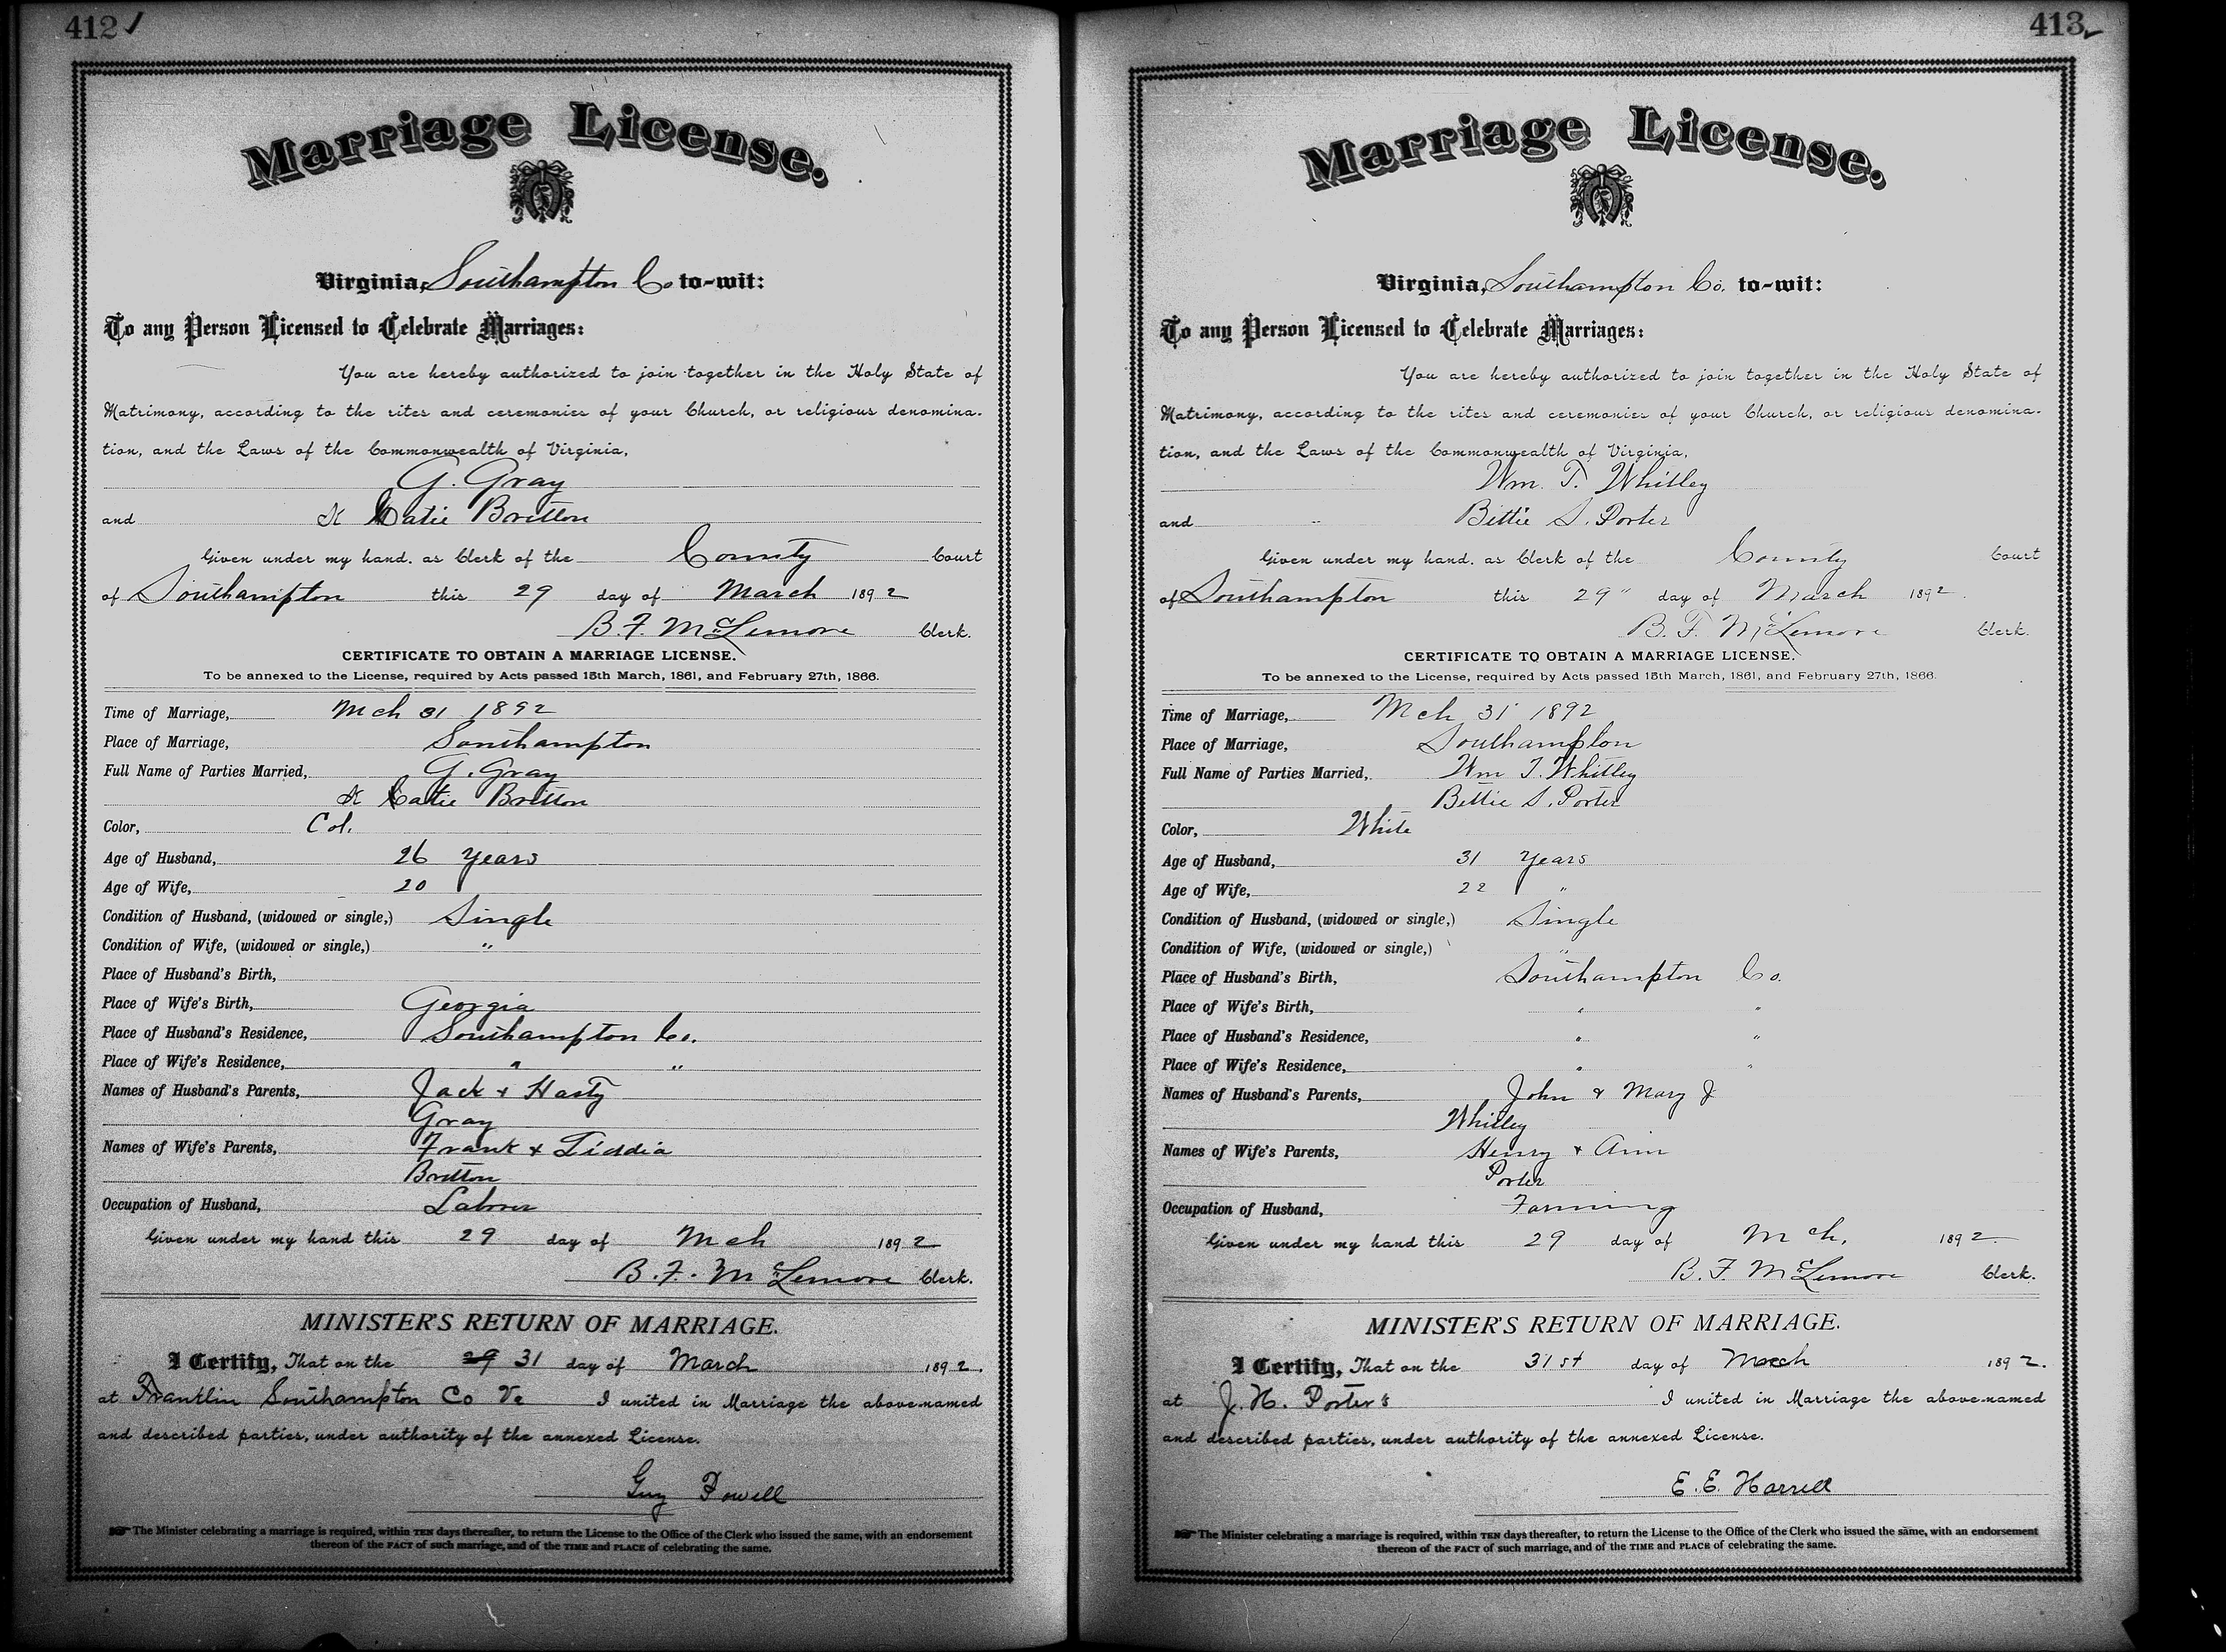 412
Marriage License.
Virginia, Southampton Co to-wit:
To any Person Licensed to Celebrate Marriages:
You are hereby authorized to join together in the Holy State of
Matrimony, according to the rites and ceremonies of your Church, or religious denomina-
tion, and the Laws of the Commonwealth of Virginia,
G. Gray
and K Catie Britton
Given under my hand, as Clerk of the County Court
of Southampton this 29 day of March 1892
B. F. McLemore Clerk.
CERTIFICATE TO OBTAIN A MARRIAGE LICENSE.
To be annexed to the License, required by Acts passed 15th March, 1861, and February 27th, 1866.
Time of Marriage, Mch 31 1892
Place of Marriage, Southampton
Full Name of Parties Married, G. Gray
K Catie Britton
Color, Col.
Age of Husband, 26 Years
Age of Wife, 20
Condition of Husband, (widowed or single,) Single
Condition of Wife, (widowed or single,) "
Place of Husband's Birth,
Place of Wife's Birth, Georgia
Place of Husband's Residence, Southampton Co.
Place of Wife's Residence, " "
Names of Husband's Parents, Jack & Hasty
Gray
Names of Wife's Parents, Frank & Liddia
Britton
Occupation of Husband, Labrer
Given under my hand this 29 day of Mch 1892
B. F. McLemore Clerk.
MINISTER'S RETURN OF MARRIAGE.
I Certify, That on the 29 31 day of March 1892.
at Franklin Southampton Co Va I united in Marriage the above-named
and described parties, under authority of the annexed License.
Guy Powell
The Minister celebrating a marriage is required, within TEN days thereafter, to return the License to the Office of the Clerk who issued the same, with an endorsement
thereon of the FACT of such marriage, and of the TIME and PLACE of celebrating the same.
413
Marriage License.
Virginia, Southampton Co. to-wit:
To any Person Licensed to Celebrate Marriages:
You are hereby authorized to join together in the Holy State of
Matrimony, according to the rites and ceremonies of your Church, or religious denomina-
tion, and the Laws of the Commonwealth of Virginia,
Wm. T. Whitley
and Bettie S. Porter
Given under my hand, as Clerk of the County Court
of Southampton this 29" day of March 1892.
B. F. McLemore Clerk.
CERTIFICATE TO OBTAIN A MARRIAGE LICENSE.
To be annexed to the License, required by Acts passed 15th March, 1861, and February 27th, 1866.
Time of Marriage, Mch 31 1892
Place of Marriage, Southampton
Full Name of Parties Married, Wm T. Whitley
Bettie S. Porter
Color, White
Age of Husband, 31 Years
Age of Wife, 22 "
Condition of Husband, (widowed or single,) Single
Condition of Wife, (widowed or single,) "
Place of Husband's Birth, Southampton Co.
Place of Wife's Birth, " "
Place of Husband's Residence, " "
Place of Wife's Residence, " "
Names of Husband's Parents, John & Mary J
Whitley
Names of Wife's Parents, Henry & Ann
Porter
Occupation of Husband, Farming
Given under my hand this 29 day of Mch, 1892.
B. F. McLemore Clerk.
MINISTER'S RETURN OF MARRIAGE.
I Certify, That on the 31st day of March 1892.
at J. H. Porters I united in Marriage the above-named
and described parties, under authority of the annexed License.
E. E. Harrell
The Minister celebrating a marriage is required, within TEN days thereafter, to return the License to the Office of the Clerk who issued the same, with an endorsement
thereon of the FACT of such marriage, and of the TIME and PLACE of celebrating the same.